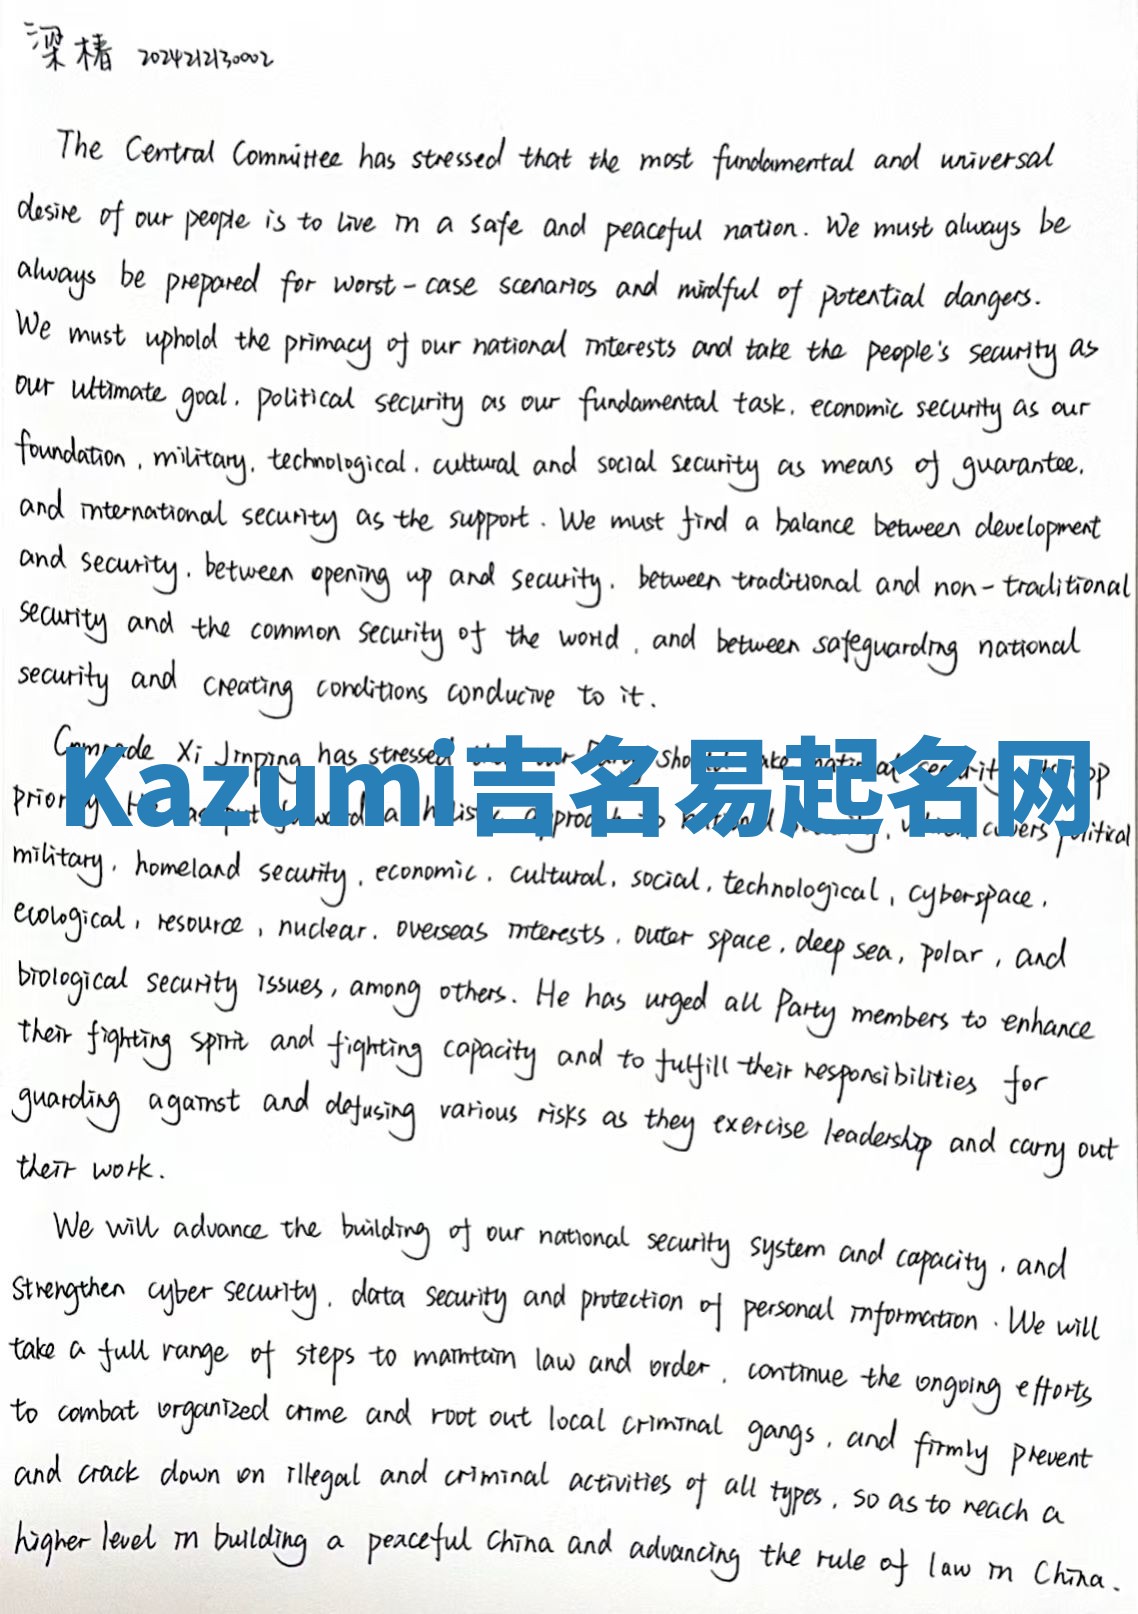 梁椿 2024212130002
The Central Committee has stressed that the most fundamental and universal
desire of our people is to live in a safe and peaceful nation. We must always be
always be prepared for worst-case scenarios and mindful of potential dangers.
We must uphold the primacy of our national interests and take the people's security as
our ultimate goal, political security as our fundamental task, economic security as our
foundation, military, technological, cultural and social security as means of guarantee,
and international security as the support. We must find a balance between development
and security, between opening up and security, between traditional and non-traditional
security and the common security of the world, and between safeguarding national
security and creating conditions conducive to it.
Comrade Xi Jinping has stressed that our Party should take national security top
Kazumi吉名易起名网
priority. He has put forward a holistic approach to national security, which covers political
military, homeland security, economic, cultural, social, technological, cyberspace,
ecological, resource, nuclear, overseas interests, outer space, deep sea, polar, and
biological security issues, among others. He has urged all Party members to enhance
their fighting spirit and fighting capacity and to fulfill their responsibilities for
guarding against and defusing various risks as they exercise leadership and carry out
their work.
We will advance the building of our national security system and capacity, and
strengthen cyber security, data security and protection of personal information. We will
take a full range of steps to maintain law and order, continue the ongoing efforts
to combat organized crime and root out local criminal gangs, and firmly prevent
and crack down on illegal and criminal activities of all types, so as to reach a
higher level in building a peaceful China and advancing the rule of law in China.